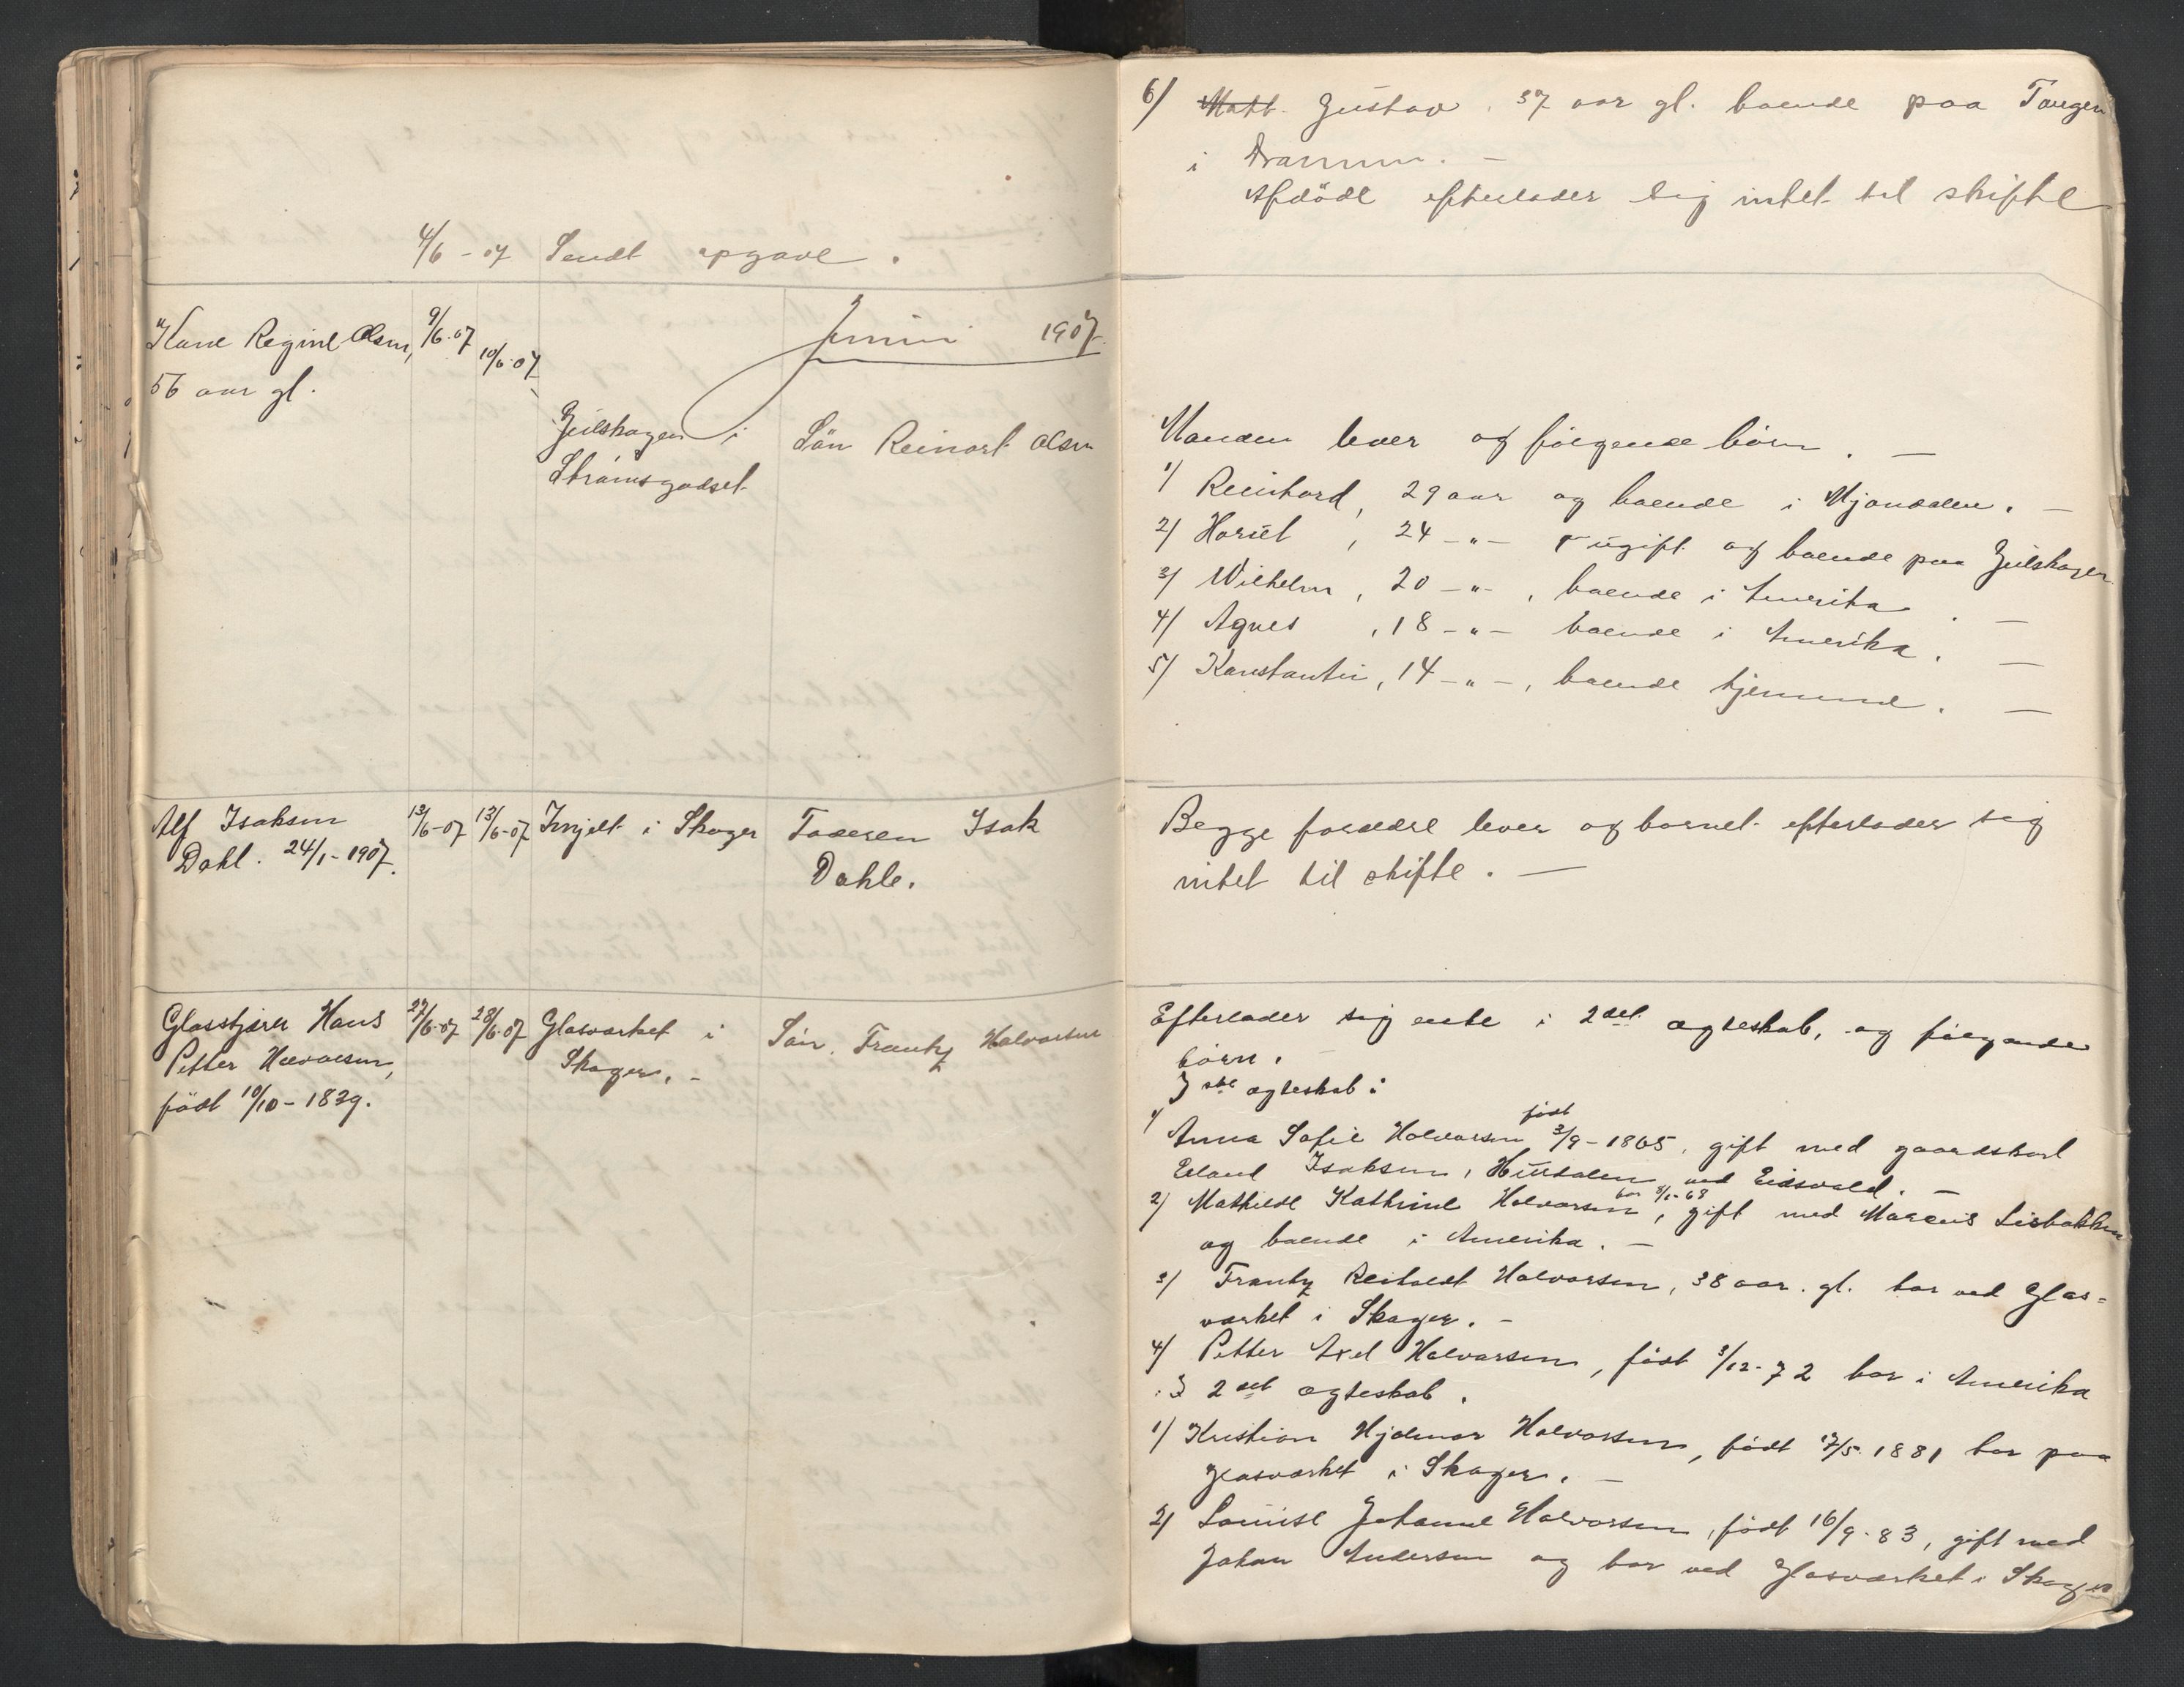 4/6 - 07 Sendt opgave.
Juni 1907.
Karie Regine Olsen,
56 aar gl.
9/6-07
10/6-07
i
Strømsgodset
Sön Reinart Olsen
Alf Isaksen
Dahl. 24/1-1907.
13/6-07 13/6-07
i Skoger
Faderen Isak
Dahle.
Hans
Petter Halvorsen,
födt 10/10-1839.
27/6-07 28/6-07
Glasværket i
Skoger. -
Sön. Frantz Halvorsen
6/ Matt. Gustav. 37 aar gl. boende paa Tangen
i Drammen. -
Afdöde efterlader sig intet til skifte
Manden lever og fölgende börn. -
1/ Reinhard, 29 aar og boende i Mjöndalen. -
2/ 24 -"- ugift og boende paa
3/ Wilhelm, 20 -"-, boende i Amerika. -
4/ Agnes, 18 -"- boende i Amerika. -
5/ Konstantin, 14 -"-, boende hjemme. -
Begge forældre lever og barnet efterlader sig
intet til skifte. -
Efterlader sig enke i 2det ægteskab, og fölgende
börn. -
I 1ste ægteskab:
1/ Anna Sofie Halvorsen födt 3/9-1865, gift med gaardskarl
Isaksen, ved Eidsvold. -
2/ Mathilde Kathrine Halvorsen, gift med Marcus
og boende i Amerika. -
3/ Frantz Reinholdt Halvorsen, 38 aar. gl. bor ved Glas=
værket i Skoger. -
4/ Petter Axel Halvorsen, födt 3/12-72 bor i Amerika
I 2det ægteskab.
1/ Kristian Hjalmar Halvorsen, födt 17/5-1881 bor paa
Glasværket i Skoger. -
2/ Louise Johanne Halvorsen, födt 16/9-83, gift med
Johan Andersen og bor ved Glasværket i Skoger